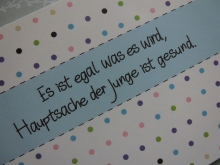 Es ist egal was es wird,
Hauptsache der Junge ist gesund.